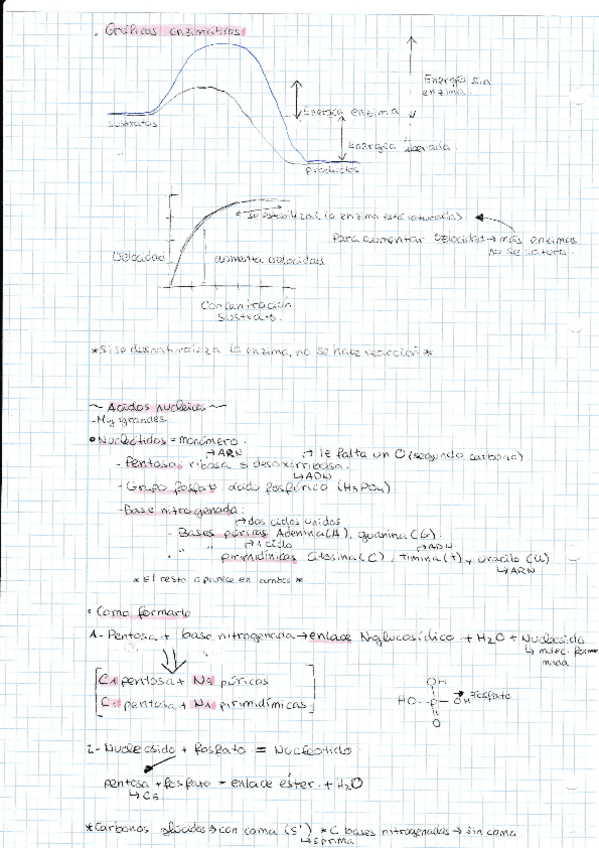 · Gráficas enzimáticas
Energía sin
enzima.
Energía enzima
sustratos
Energía liberada.
productos
se estabiliza (la enzima está saturada)
Para aumentar velocidad → más enzimas
no se satura.
Velocidad
aumenta velocidad
Concentración
sustrato.
*Si se desnaturaliza la enzima, no se hace reacción*
~ Acidos nucleicos ~
-Muy grandes
• Nucleótidos = monómero.
→ARN
→ le falta un O (segundo carbono)
- Pentosa: ribosa si desoxirribosa.
↳ADN
- Grupo fosfato ácido fosfórico (H3PO4)
-Base nitrogenada:
→dos ciclos unidos
· Bases púricas Adenina(A), guanina(G).
→1 ciclo
→ADN
· " " pirimidínicas Citosina(C), timina(T) y uracilo (U)
↳ARN
* El resto aparece en ambos *
• Como formarlo
1- Pentosa + base nitrogenada → enlace N-glucosídico + H2O + Nucleósido
↳ molec. formada
C1 pentosa + N9 púricas
C1 pentosa + N1 pirimidímicas
OH
HO - P - OH → Fosfato
O
2- Nucleósido + fosfato = Nucleótido
pentosa + fosfato - enlace éster + H2O
↳ C5
*Carbonos glúcidos → con coma (5') * C bases nitrogenadas → sin coma.
↳5 prima